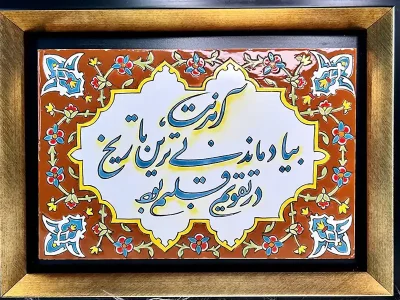 آمدنت،
بیاد ماندنی ترین تاریخ
در تقویم قلبم بود